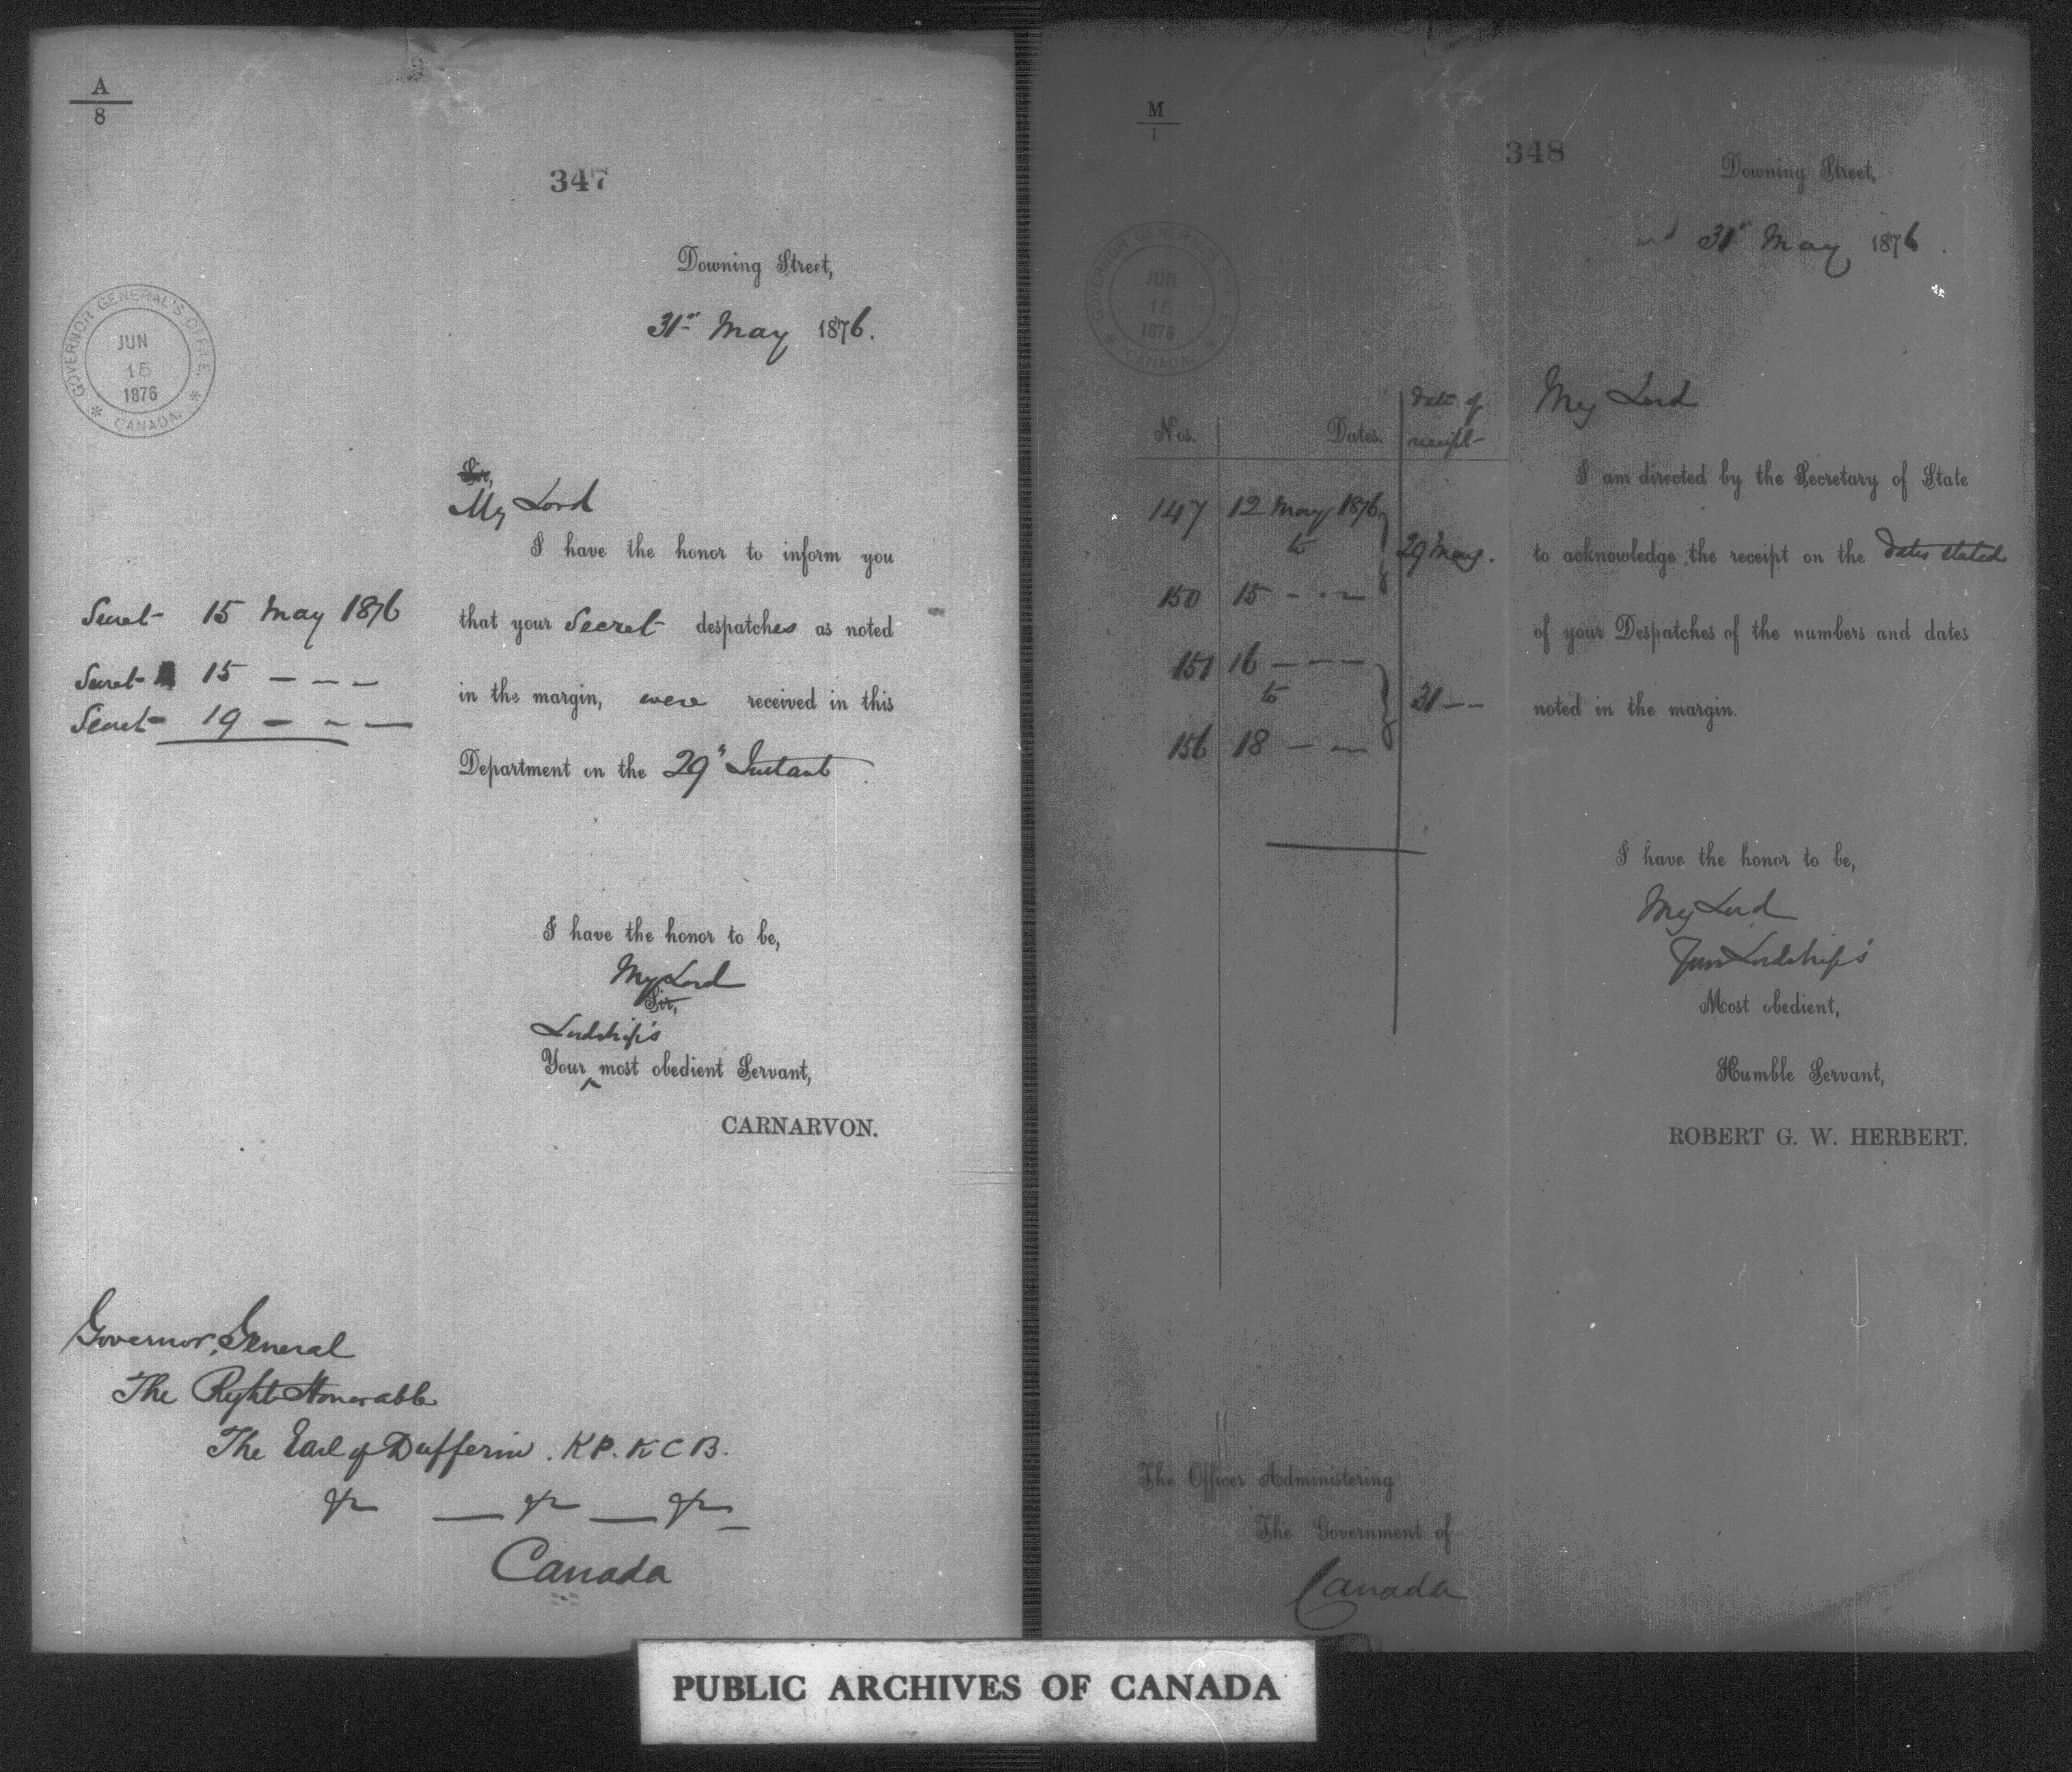 A
8
347
Downing Street,
31st May 1876.
GOVERNOR GENERAL'S OFFICE.
JUN
15
1876
* CANADA. *
Sir,
My Lord
I have the honor to inform you
Secret 15 May 1876
that your Secret despatches as noted
Secret 15 — — —
in the margin, were received in this
Secret 19 — — —
Department on the 29th Instant
I have the honor to be,
My Lord
Sir,
Lordship's
Your ^ most obedient Servant,
CARNARVON.
Governor General
The Right Honorable
The Earl of Dufferin. K.P. K C B.
&c — &c — &c —
Canada
M
1
348
Downing Street,
31st May 1876.
GOVERNOR GENERAL'S OFFICE.
JUN
15
1876
* CANADA. *
My Lord
Nos. Dates. Date of receipt
I am directed by the Secretary of State
147 12 May 1876
to 29 May.
to acknowledge the receipt on the dates stated
150 15 - - -
of your Despatches of the numbers and dates
151 16 — — —
to 31 — —
noted in the margin.
156 18 — —
I have the honor to be,
My Lord
Your Lordship's
Most obedient,
Humble Servant,
ROBERT G. W. HERBERT.
The Officer Administering
The Government of
Canada
PUBLIC ARCHIVES OF CANADA